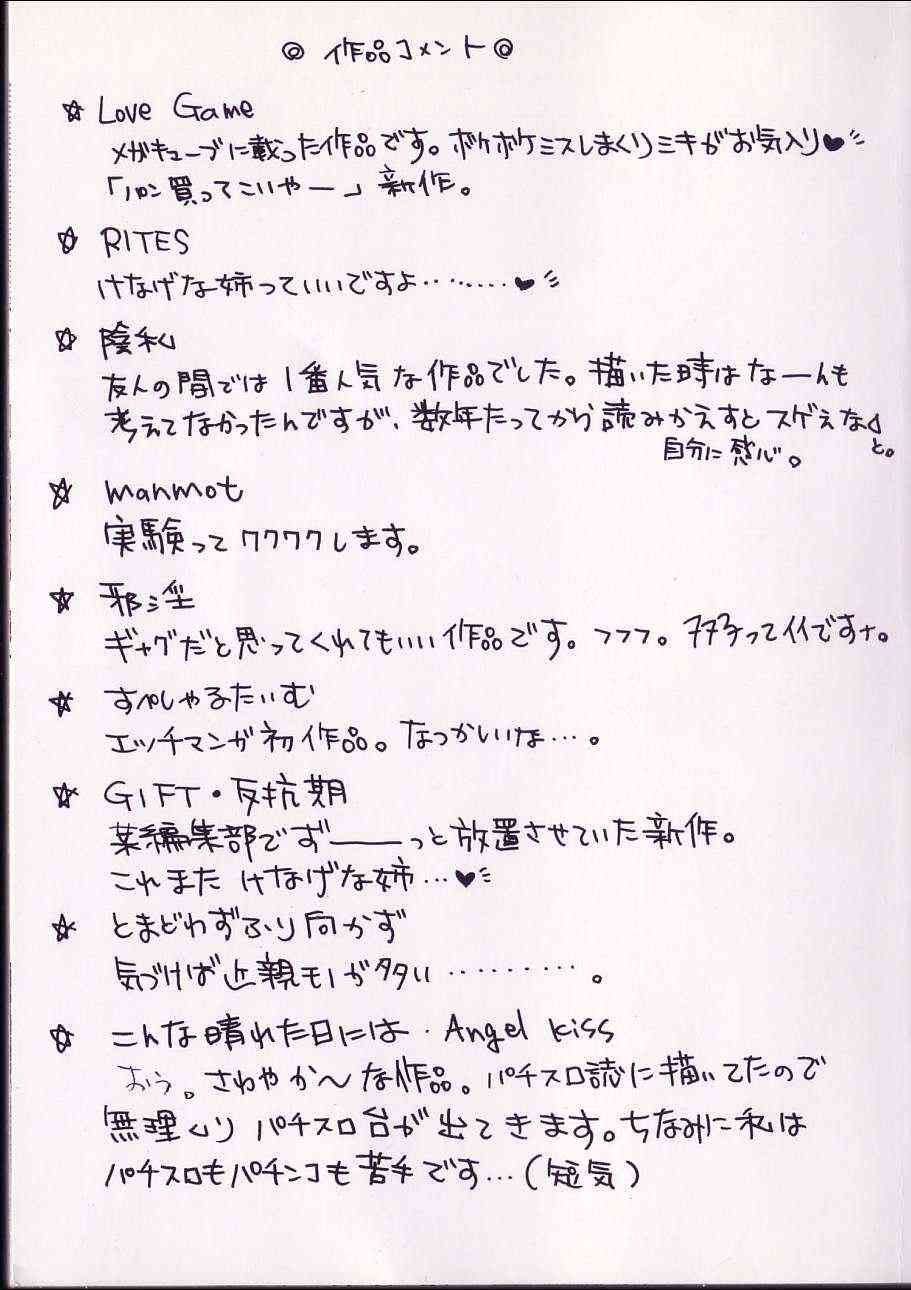 ◎ 作品コメント ◎
☆ Love Game
メガキューブに載った作品です。ボケボケミスしまくりミキがお気入り♥
「パン買ってこいやー」新作。
☆ RITES
けなげな姉っていいですよ………♥
☆ 陰私
友人の間では1番人気な作品でした。描いた時はなーんも
考えてなかったんですが、数年たってから読みかえすとスゲぇな
と。
自分に感心。
☆ manmot
実験ってワクワクします。
☆ 邪淫
ギャグだと思ってくれてもいい作品です。フフフ。って イイですナ。
☆ すぺしゃるたいむ
エッチマンガ初作品。なつかしいな…。
☆ GIFT・反抗期
某編集部でずーーっと放置させていた新作。
これまた けなげな姉…♥
☆ とまどわずふり向かず
気づけば近親モノが多い………。
☆ こんな晴れた日には・Angel kiss
おう。さわやか〜な作品。パチスロ誌に描いてたので
無理くり パチスロ台が出てきます。ちなみに私は
パチスロもパチンコも苦手です…(短気)